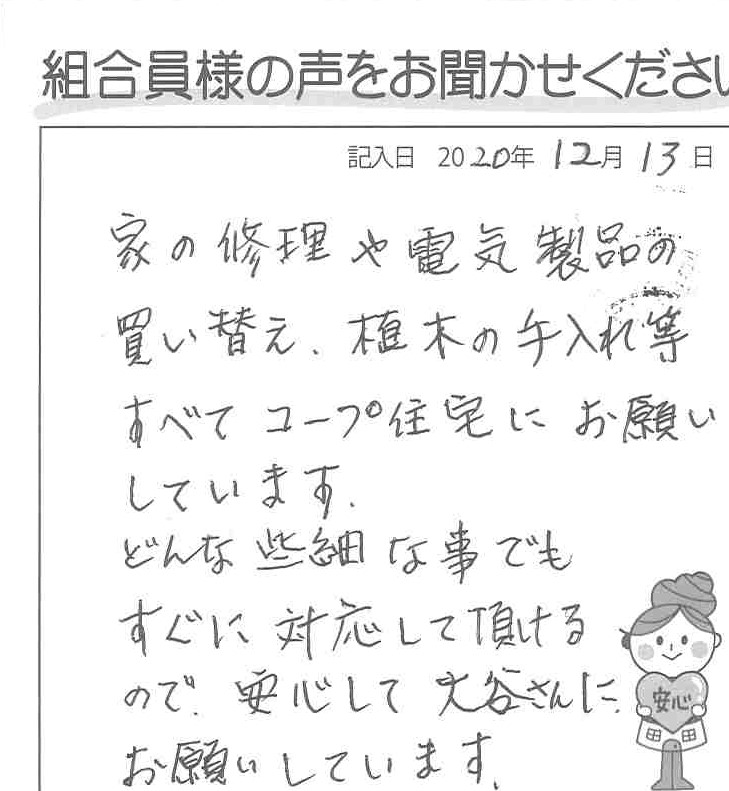 組合員様の声をお聞かせくださ
記入日 2020年 12月 13日
家の修理や電気製品の
買い替え、植木の手入れ等
すべてコープ住宅にお願い
しています.
どんな些細な事でも
すぐに対応して頂ける
ので、安心して大谷さんに
お願いしています.
安心